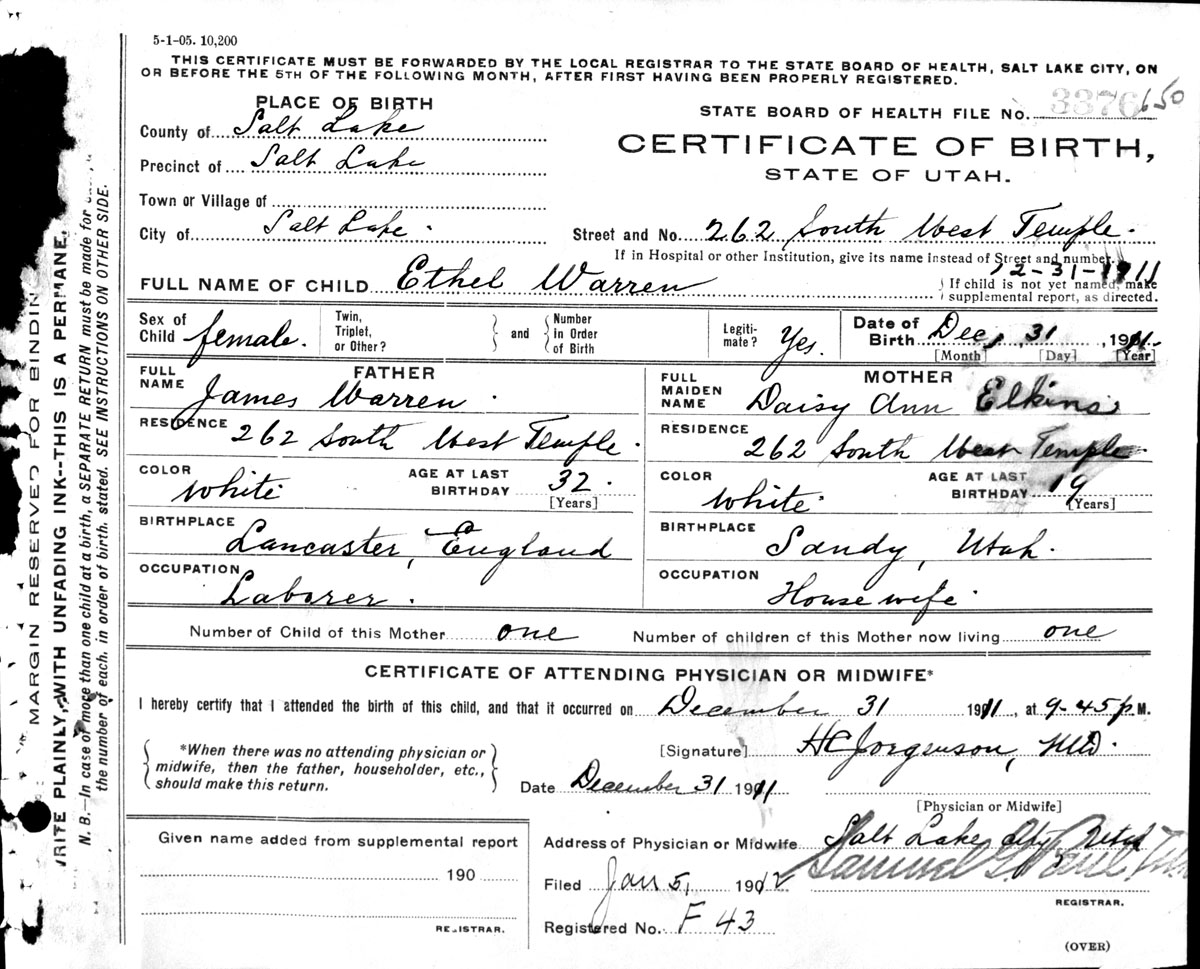 5-1-05. 10,200
THIS CERTIFICATE MUST BE FORWARDED BY THE LOCAL REGISTRAR TO THE STATE BOARD OF HEALTH, SALT LAKE CITY, ON
OR BEFORE THE 5TH OF THE FOLLOWING MONTH, AFTER FIRST HAVING BEEN PROPERLY REGISTERED.
PLACE OF BIRTH
County of Salt Lake
Precinct of Salt Lake
Town or Village of
City of Salt Lake.
STATE BOARD OF HEALTH FILE No. 3376 650
CERTIFICATE OF BIRTH,
STATE OF UTAH.
Street and No. 262 South West Temple.
If in Hospital or other Institution, give its name instead of Street and number.
12-31-1911
FULL NAME OF CHILD Ethel Warren
If child is not yet named, make
supplemental report, as directed.
Sex of Child female.
Twin, Triplet, or Other?
and
Number in Order of Birth
Legiti-mate? Yes.
Date of Birth Dec, 31, 1911
[Month] [Day] [Year]
FATHER
FULL NAME James Warren.
RESIDENCE 262 South West Temple.
COLOR White
AGE AT LAST BIRTHDAY 32.
[Years]
BIRTHPLACE Lancaster, England
OCCUPATION Laborer.
MOTHER
FULL MAIDEN NAME Daisy Ann Elkins
RESIDENCE 262 South West Temple.
COLOR White.
AGE AT LAST BIRTHDAY 19
[Years]
BIRTHPLACE Sandy, Utah.
OCCUPATION House wife.
Number of Child of this Mother one
Number of children of this Mother now living one
CERTIFICATE OF ATTENDING PHYSICIAN OR MIDWIFE*
I hereby certify that I attended the birth of this child, and that it occurred on December 31 1911, at 9-45 p M.
*When there was no attending physician or
midwife, then the father, householder, etc.,
should make this return.
[Signature] HC Jorgenson, MD.
Date December 31 1911
[Physician or Midwife]
Given name added from supplemental report
190
REGISTRAR.
Address of Physician or Midwife Salt Lake City Utah
Filed Jan 5, 1912
Samuel G. Paul
REGISTRAR.
Registered No. F 43
(OVER)
MARGIN RESERVED FOR BINDING
WRITE PLAINLY, WITH UNFADING INK--THIS IS A PERMANE
N. B.—In case of more than one child at a birth, a SEPARATE RETURN must be made for
the number of each, in order of birth, stated. SEE INSTRUCTIONS ON OTHER SIDE.